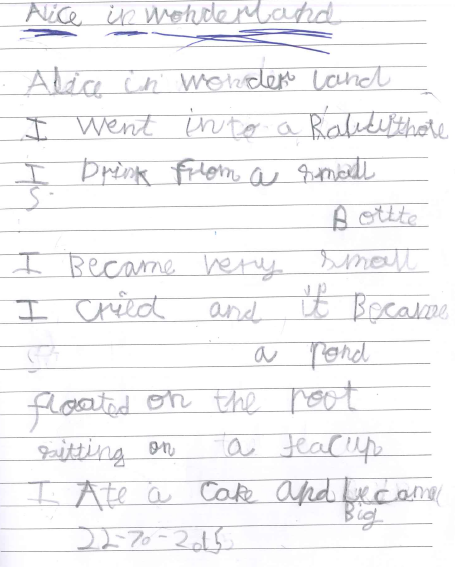 Alice in wonderland
Alice in wonder land
I went into a
I Drink from a small
S
Bottte
I Became very small
I cried and it Became
a pond
floated on the
sitting on a teacup
I Ate a cake and became
Big
22-10-2015